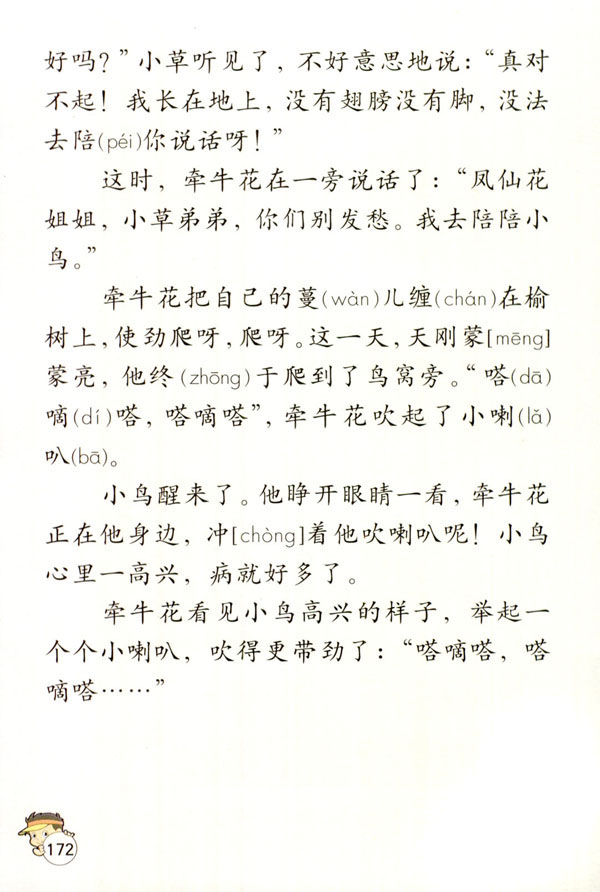 好吗？”小草听见了，不好意思地说：“真对
不起！我长在地上，没有翅膀没有脚，没法
去陪(péi)你说话呀！”
这时，牵牛花在一旁说话了：“凤仙花
姐姐，小草弟弟，你们别发愁。我去陪陪小
鸟。”
牵牛花把自己的蔓(wàn)儿缠(chán)在榆
树上，使劲爬呀，爬呀。这一天，天刚蒙[mēng]
蒙亮，他终(zhōng)于爬到了鸟窝旁。“嗒(dā)
嘀(dí)嗒，嗒嘀嗒”，牵牛花吹起了小喇(lǎ)
叭(bā)。
小鸟醒来了。他睁开眼睛一看，牵牛花
正在他身边，冲[chòng]着他吹喇叭呢！小鸟
心里一高兴，病就好多了。
牵牛花看见小鸟高兴的样子，举起一
个个小喇叭，吹得更带劲了：“嗒嘀嗒，嗒
嘀嗒……”
172